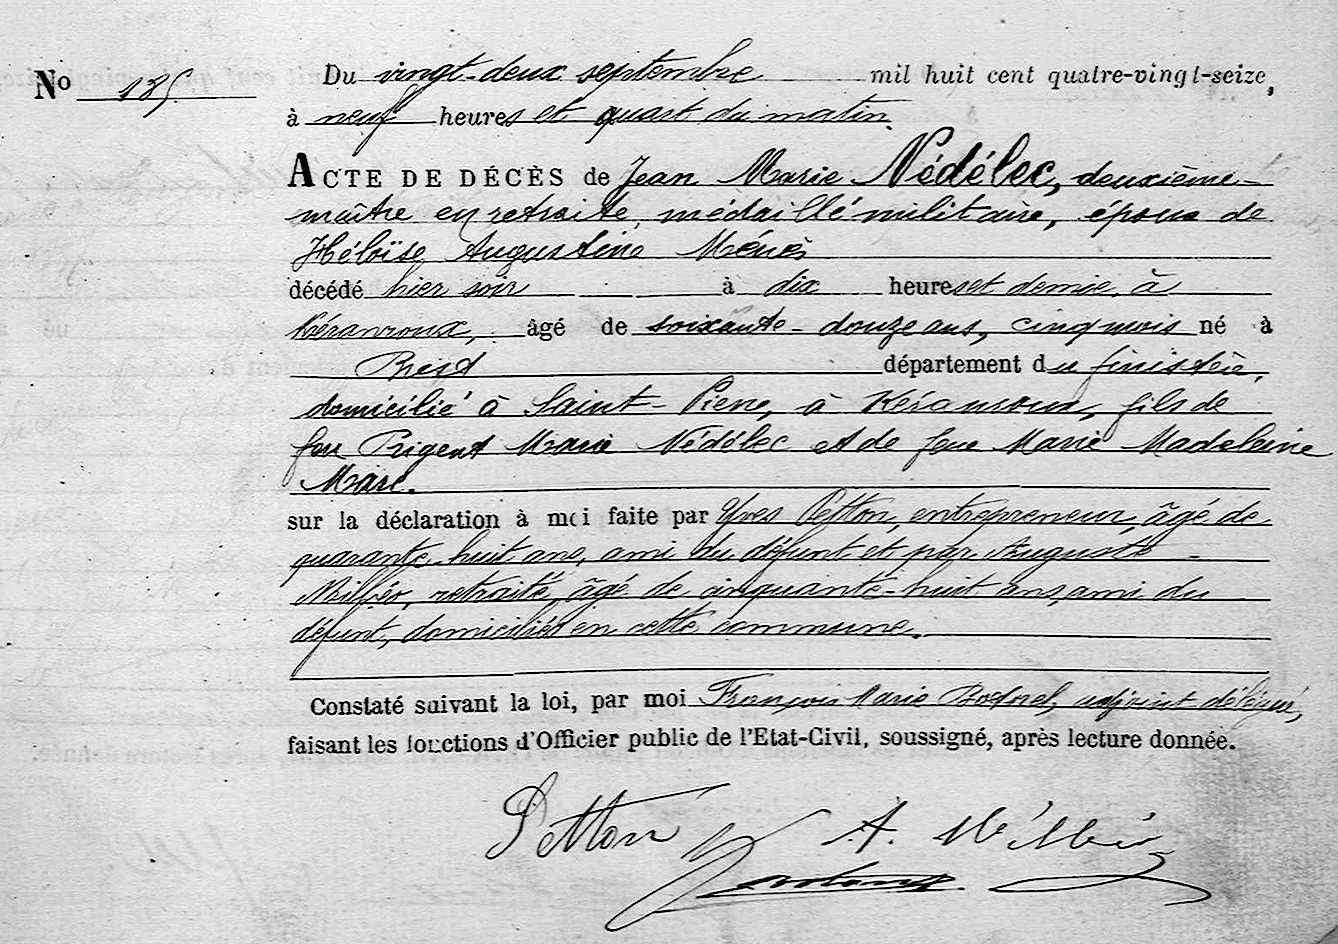 No 135. Du vingt-deux septembre mil huit cent quatre-vingt-seize,
à neuf heures et quart du matin.
ACTE DE DÉCÈS de Jean Marie Nédélec, deuxième
maître en retraite, médaillé militaire, époux de
Héloïse Augustine Ménès
décédé hier soir à dix heures et demie, à
Kéranroux, âgé de soixante-douze ans, cinq mois né à
Brest département du finistère,
domicilié à Saint-Pierre, à Kéranroux, fils de
feu Prigent Marie Nédélec et de feue Marie Madeleine
Marc.
sur la déclaration à moi faite par Yves Petton, entrepreneur, âgé de
quarante-huit ans, ami du défunt et par Auguste
Millier, retraité, âgé de cinquante-huit ans, ami du
défunt, domiciliés en cette commune.
Constaté suivant la loi, par moi François Marie adjoint délégué,
faisant les fonctions d'Officier public de l'Etat-Civil, soussigné, après lecture donnée.
Petton A.